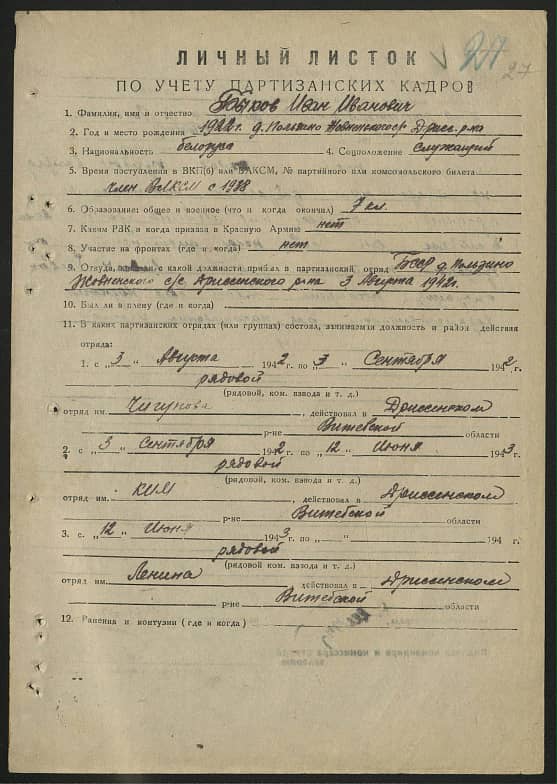 27
27
ЛИЧНЫЙ ЛИСТОК
ПО УЧЕТУ ПАРТИЗАНСКИХ КАДРОВ
1. Фамилия, имя и отчество Быков Иван Иванович
2. Год и место рождения 1922 г. д. Пользино Жовнинского с/с Дрисс. р-на
3. Национальность белорус 4. Соцположение служащий
5. Время поступления в ВКП(б) или ВЛКСМ, № партийного или комсомольского билета
член ВЛКСМ с 1938
6. Образование: общее и военное (что и когда окончил) 7 кл.
7. Каким РЗК и когда призван в Красную Армию нет
8. Участие на фронтах (где и когда) нет
9. Откуда, когда и с какой должности прибыл в партизанский отряд БССР д. Пользино
с/с Дриссенского р-на 3 Августа 1942 г.
10. Был ли в плену (где и когда)
11. В каких партизанских отрядах (или группах) состоял, занимаемая должность и район действия
отряда:
1. с „3“ Августа 1942 г. по „3“ Сентября 1942 г.
рядовой
(рядовой, ком. взвода и т. д.)
отряд им. Чигунова, действовал в Дриссенском
р-не Витебской области
2. с „3“ Сентября 1942 г. по „12“ Июня 1943 г.
рядовой
(рядовой, ком. взвода и т. д.)
отряд им. КИМ, действовал в Дриссенском
р-не Витебской области
3. с „12“ Июня 1943 г. по „ “ 194 г.
рядовой
(рядовой ком. взвода и т. д.)
отряд им. Ленина действовал в Дриссенском
р-не Витебской области
12. Ранения и контузии (где и когда)